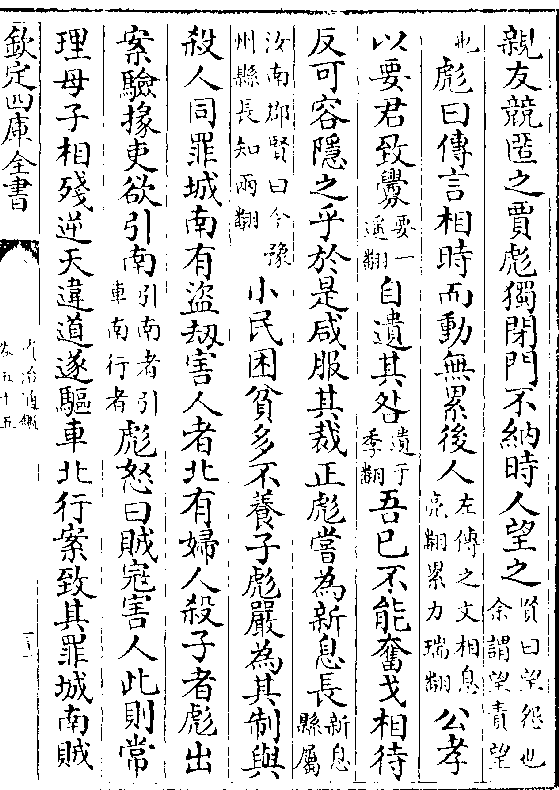 親友競匿之賈彪獨閉門不納時人望之賢曰望怨也余謂望責望
也彪曰傳言相時而動無累後人左傳之文相息亮翻累力瑞翻公孝
以要君致釁要一遥翻自遺其咎遺于季翻吾已不能奮戈相待
反可容隱之乎於是咸服其裁正彪嘗為新息長新息縣屬
汝南郡賢曰今豫州縣長知兩翻小民困貧多不養子彪嚴為其制與
殺人同罪城南有盜劫害人者北有婦人殺子者彪出
案驗掾吏欲引南引南者引車南行者彪怒曰賊寇害人此則常
理母子相殘逆天違道遂驅車北行案致其罪城南賊
欽定四庫全書